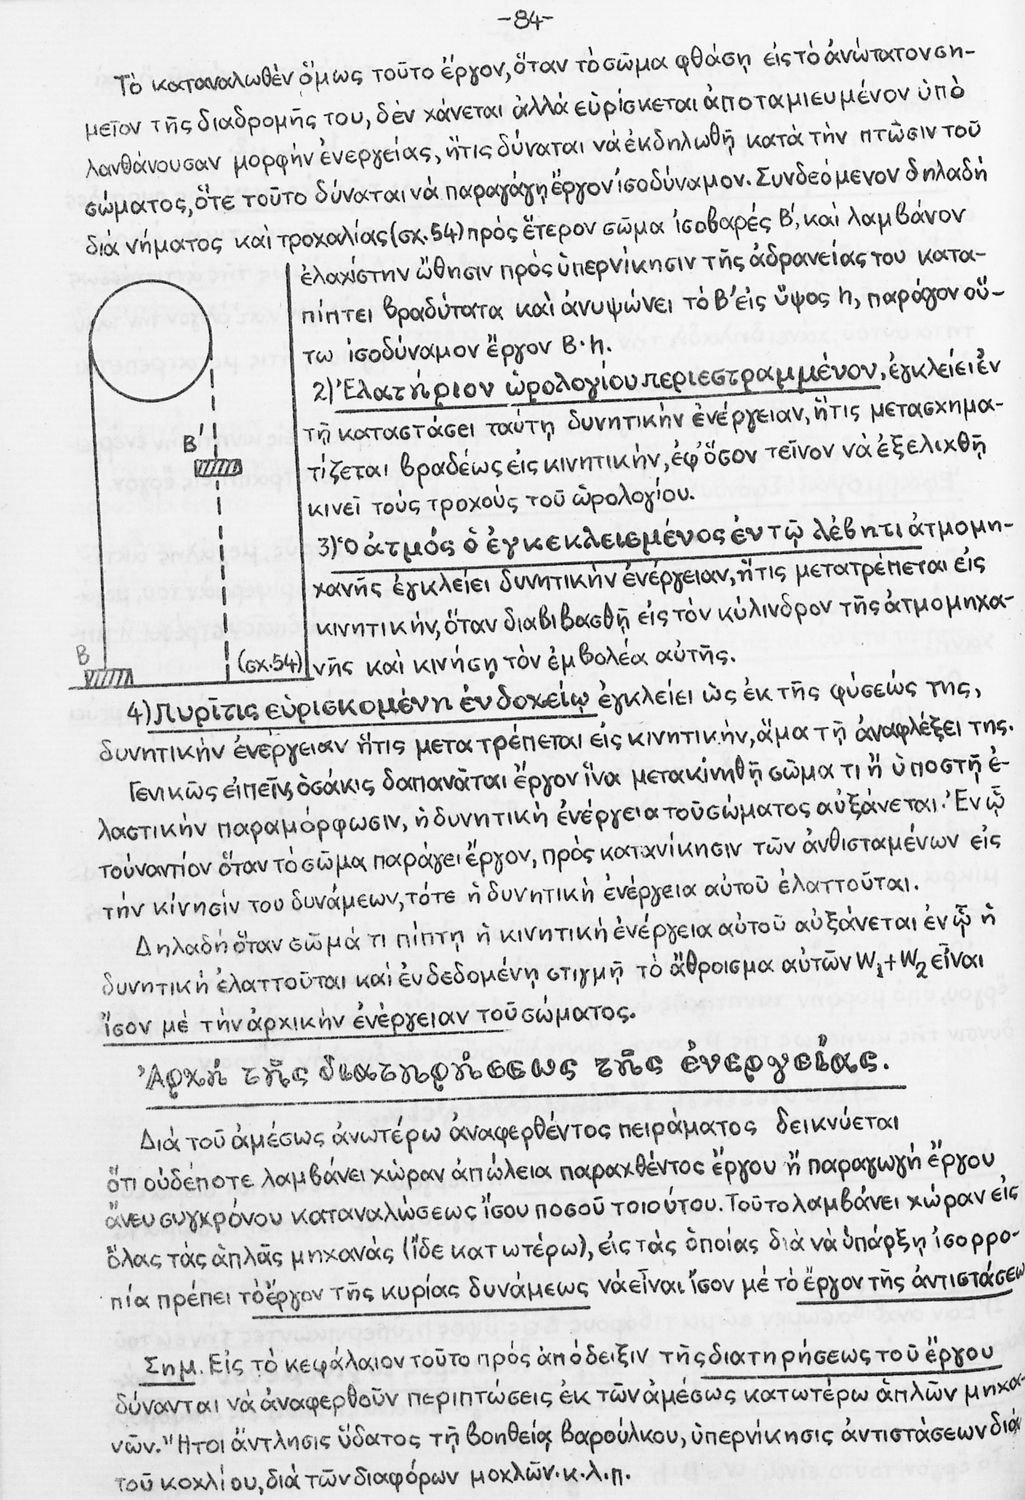 -84-
Τὸ καταναλωθὲν ὅμως τοῦτο ἔργον, ὅταν τὸ σῶμα φθάσῃ εἰς τὸ ἀνώτατον ση-
μεῖον τῆς διαδρομῆς του, δὲν χάνεται ἀλλά εὑρίσκεται ἀποταμιευμένον ὑπὸ
λανθάνουσαν μορφήν ἐνεργείας, ἥτις δύναται νὰ ἐκδηλωθῇ κατὰ τὴν πτῶσιν τοῦ
σώματος, ὅτε τοῦτο δύναται νὰ παραγάγῃ ἔργον ἰσοδύναμον. Συνδεόμενον δηλαδή
διά νήματος καὶ τροχαλίας (σχ. 54) πρὸς ἕτερον σῶμα ἰσοβαρές Β', καὶ λαμβάνον
ἐλαχίστην ὤθησιν πρὸς ὑπερνίκησιν τῆς ἀδρανείας του κατα-
πίπτει βραδύτατα καὶ ἀνυψώνει τὸ Β' εἰς ὕψος h, παράγον οὕ-
τω ἰσοδύναμον ἔργον Β·h.
2) Ἐλατήριον ὡρολογίου περιεστραμμένον, ἐγκλείει ἐν
τῇ καταστάσει ταύτῃ δυνητικὴν ἐνέργειαν, ἥτις μετασχημα-
τίζεται βραδέως εἰς κινητικήν, ἐφ' ὅσον τεῖνον νὰ ἐξελιχθῇ
κινεῖ τούς τροχούς τοῦ ὡρολογίου.
3) Ὁ ἀτμός ὁ ἐγκεκλεισμένος ἐν τῷ λέβητι ἀτμομη-
χανῆς ἐγκλείει δυνητικὴν ἐνέργειαν, ἥτις μετατρέπεται εἰς
κινητικήν, ὅταν διαβιβασθῇ εἰς τὸν κύλινδρον τῆς ἀτμομηχα-
νῆς καὶ κινήσῃ τὸν ἐμβολέα αὐτῆς.
Β'
Β
(σχ. 54)
4) Πυρῖτις εὑρισκομένη ἐν δοχείῳ ἐγκλείει ὡς ἐκ τῆς φύσεώς της,
δυνητικὴν ἐνέργειαν ἥτις μετατρέπεται εἰς κινητικήν, ἅμα τῇ ἀναφλέξει της.
Γενικῶς εἰπεῖν, ὁσάκις δαπανᾶται ἔργον ἵνα μετακινηθῇ σῶμα τι ἤ ὑποστῇ ἐ-
λαστικὴν παραμόρφωσιν, ἡ δυνητικὴ ἐνέργεια τοῦ σώματος αὐξάνεται. Ἐν ᾧ
τοὐναντίον ὅταν τὸ σῶμα παράγει ἔργον, πρὸς κατανίκησιν τῶν ἀνθισταμένων εἰς
τὴν κίνησίν του δυνάμεων, τότε ἡ δυνητικὴ ἐνέργεια αὐτοῦ ἐλαττοῦται.
Δηλαδή ὅταν σῶμά τι πίπτῃ ἡ κινητικὴ ἐνέργεια αὐτοῦ αὐξάνεται ἐν ᾧ ἡ
δυνητικὴ ἐλαττοῦται καὶ ἐν δεδομένῃ στιγμῇ τὸ ἄθροισμα αὐτῶν W₁+W₂ εἶναι
ἴσον μὲ τὴν ἀρχικὴν ἐνέργειαν τοῦ σώματος.
Ἀρχὴ τῆς διατηρήσεως τῆς ἐνεργείας.
Διά τοῦ ἀμέσως ἀνωτέρω ἀναφερθέντος πειράματος δεικνύεται
ὅτι οὐδέποτε λαμβάνει χώραν ἀπώλεια παραχθέντος ἔργου ἤ παραγωγή ἔργου
ἄνευ συγχρόνου καταναλώσεως ἴσου ποσοῦ τοιούτου. Τοῦτο λαμβάνει χώραν εἰς
ὅλας τὰς ἁπλᾶς μηχανάς (ἴδε κατωτέρω), εἰς τὰς ὁποίας διὰ νὰ ὑπάρξῃ ἰσορρο-
πία πρέπει τὸ ἔργον τῆς κυρίας δυνάμεως νὰ εἶναι ἴσον μὲ τὸ ἔργον τῆς ἀντιστάσεω
Σημ. Εἰς τὸ κεφάλαιον τοῦτο πρὸς ἀπόδειξιν τῆς διατηρήσεως τοῦ ἔργου
δύνανται νὰ ἀναφερθοῦν περιπτώσεις ἐκ τῶν ἀμέσως κατωτέρω ἁπλῶν μηχα-
νῶν. Ἤτοι ἄντλησις ὕδατος τῇ βοηθείᾳ βαρούλκου, ὑπερνίκησις ἀντιστάσεων διὰ
τοῦ κοχλίου, διὰ τῶν διαφόρων μοχλῶν. κ.λ.π.